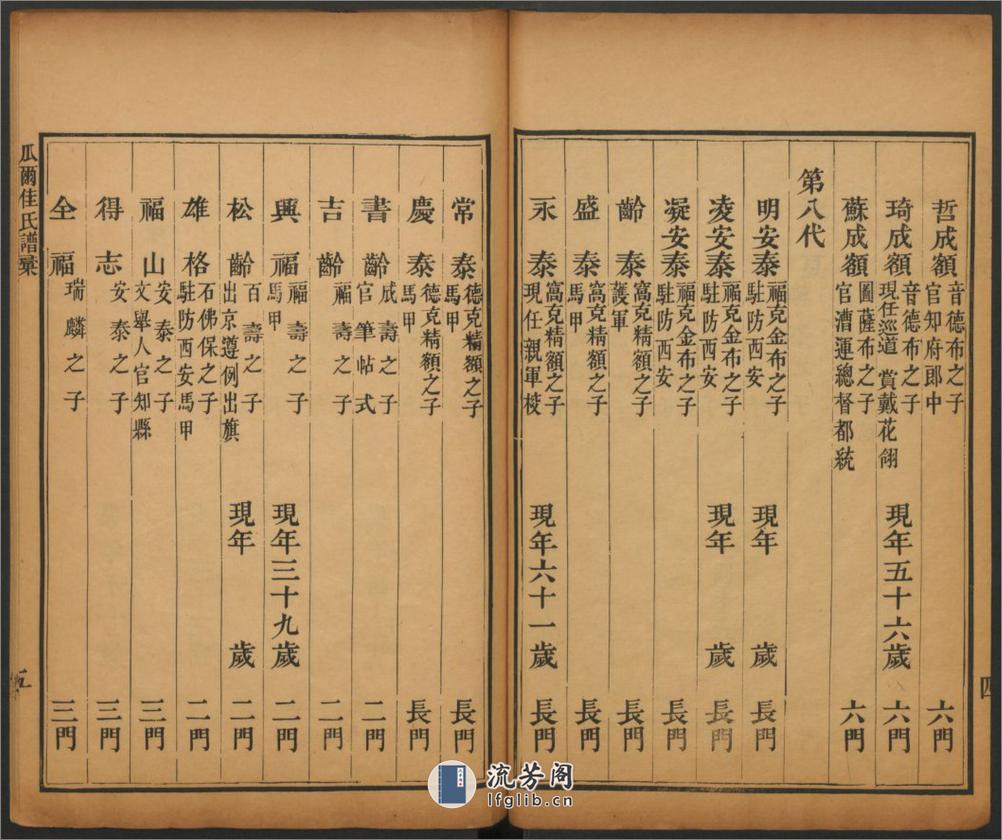 哲成額 音德布之子 官知府郎中 六門
琦成額 音德布之子 現任巡道 賞戴花翎 現年五十六歲 六門
蘇成額 圖薩布之子 官漕運總督都統 六門
第八代
明安泰 福克金布之子 駐防西安 現年 歲 長門
凌安泰 福克金布之子 駐防西安 現年 歲 長門
凝安泰 福克金布之子 駐防西安 長門
齡泰 窩克精額之子 護軍 長門
盛泰 窩克精額之子 馬甲 長門
永泰 窩克精額之子 現任親軍校 現年六十一歲 長門
四
常泰 德克精額之子 馬甲 長門
慶泰 德克精額之子 馬甲 長門
書齡 成壽之子 官筆帖式 二門
吉齡 福壽之子 二門
興福 福壽之子 馬甲 現年三十九歲 二門
松齡 百壽之子 出京遵例出旗 現年 歲 二門
雄格 石佛保之子 駐防西安馬甲 二門
福山 安泰之子 文舉人官知縣 三門
得志 安泰之子 三門
全福 瑞麟之子 三門
瓜爾佳氏譜彙
五
流芳阁
lfglib.cn